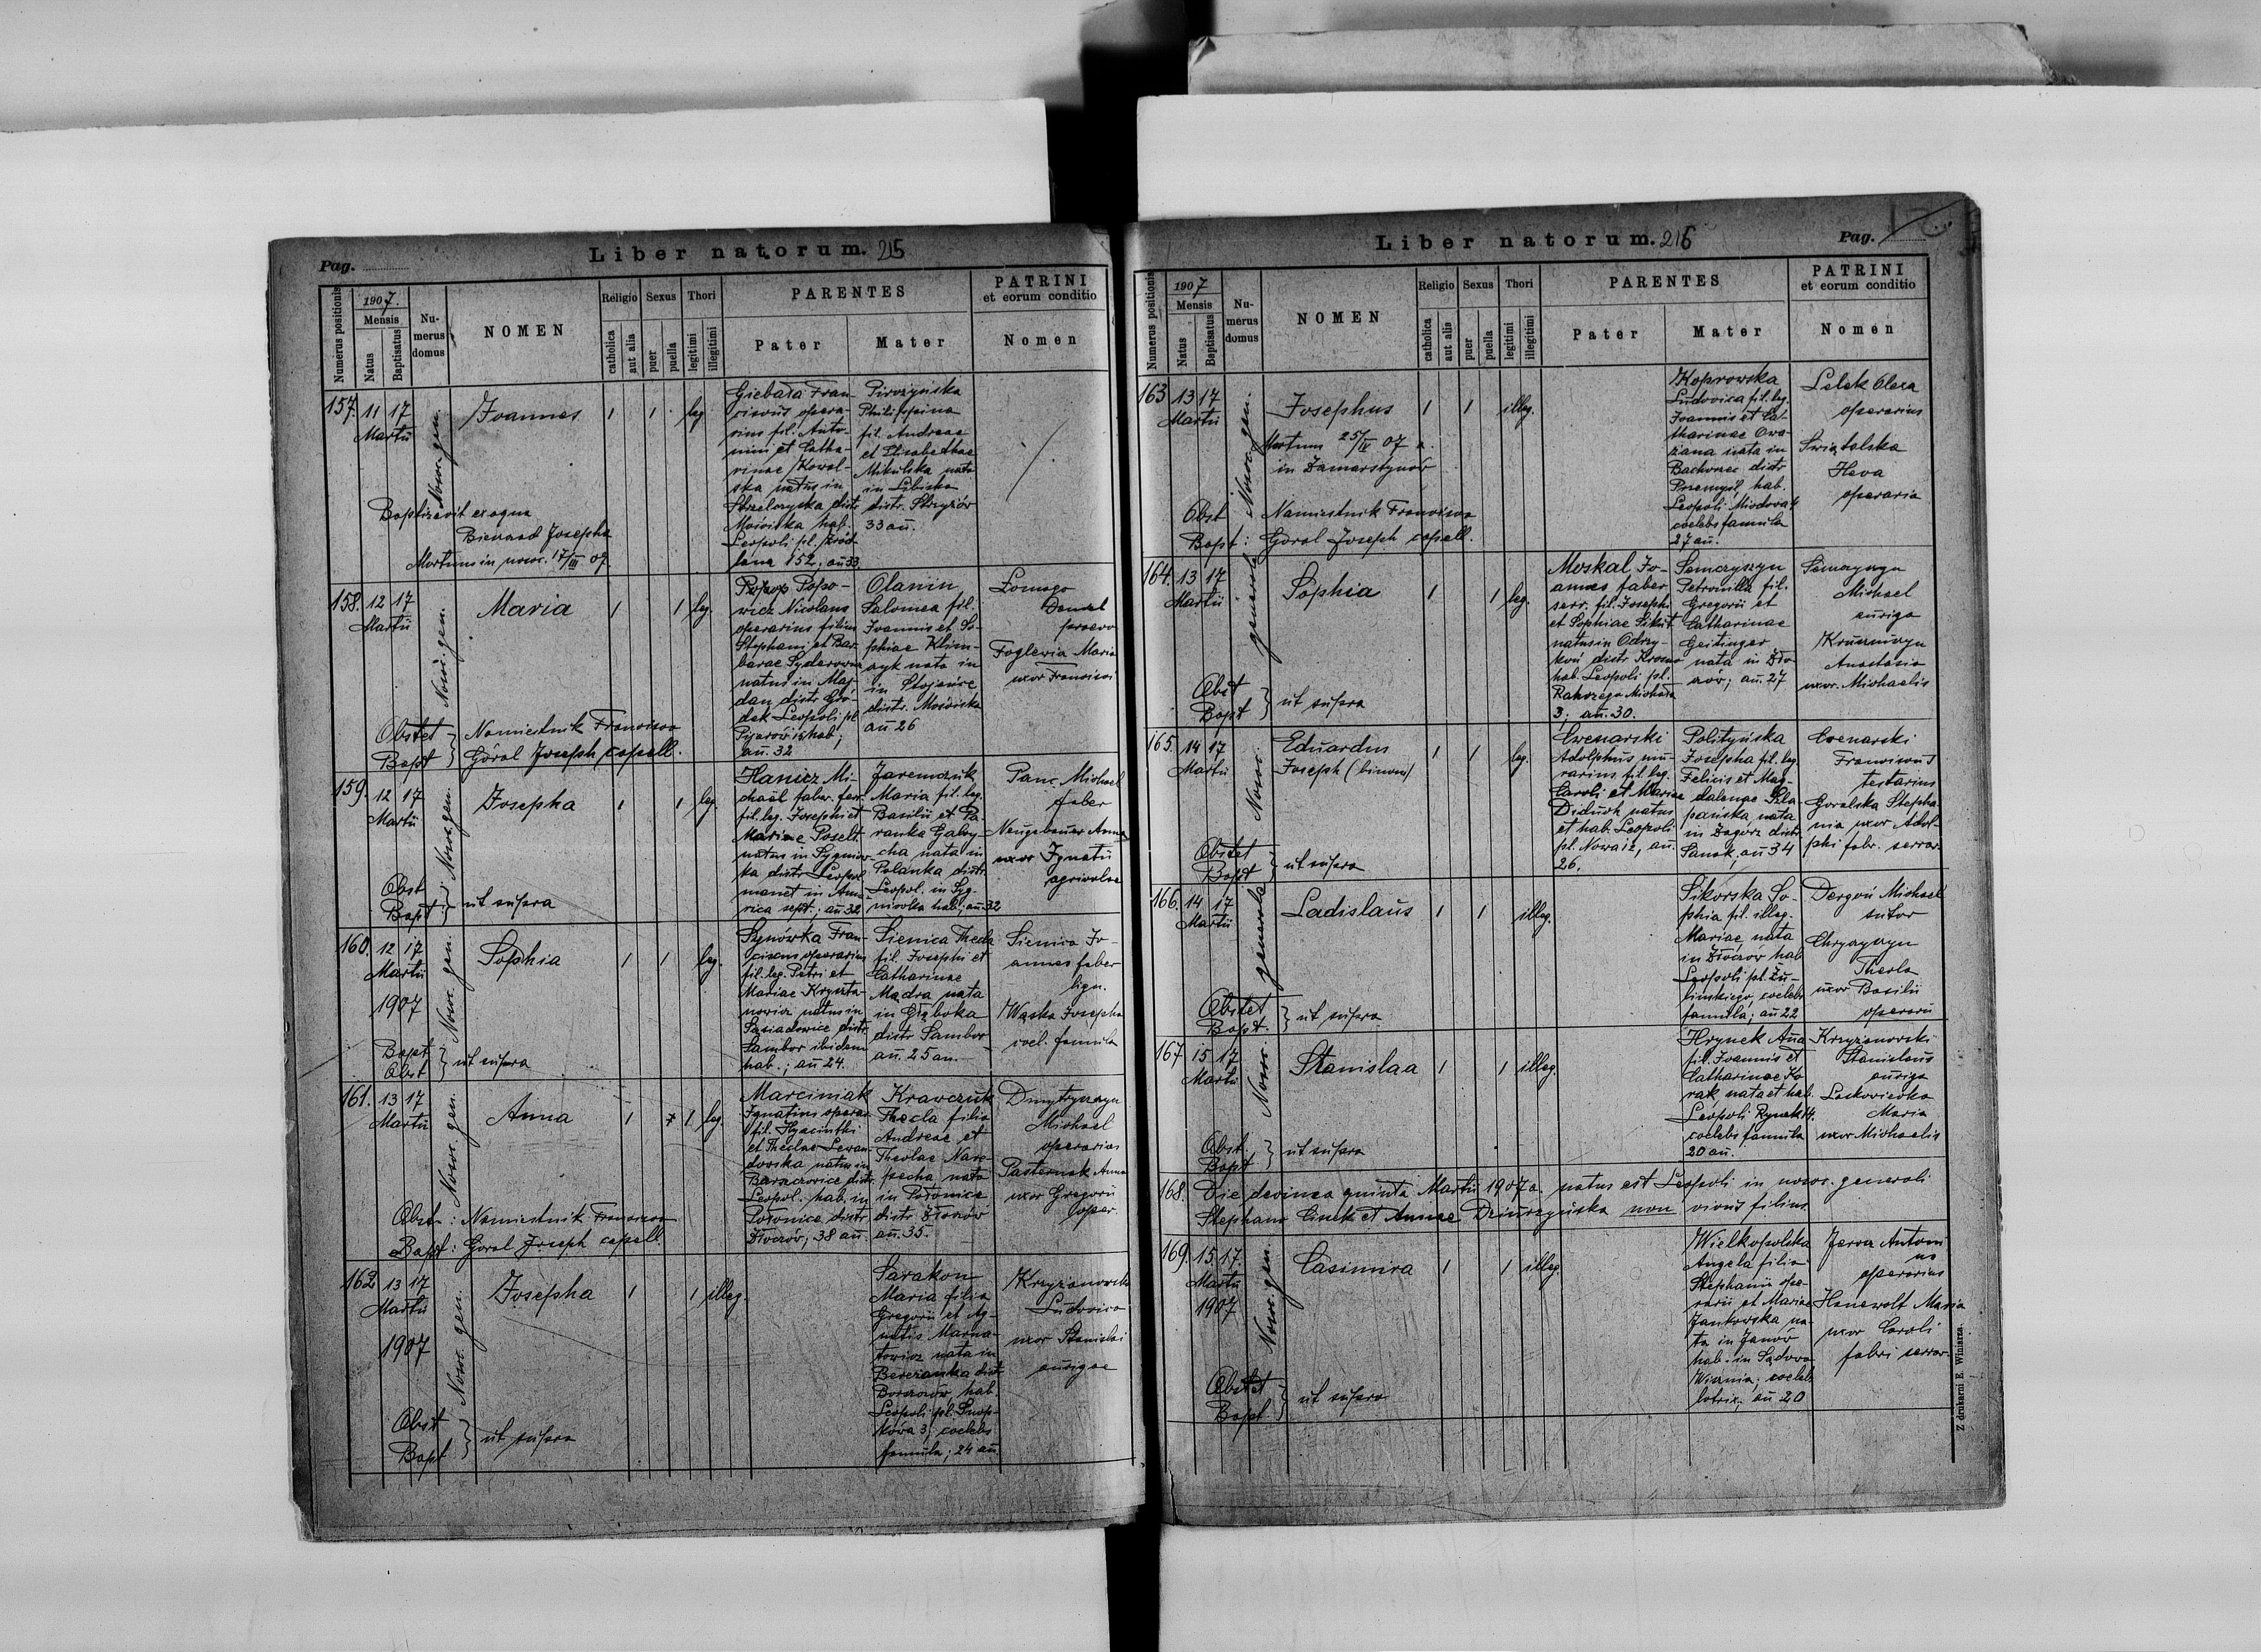 Pag.
Liber natorum. 215
Numerus positionis
1907.
Mensis
Natus
Baptisatus
Numerus domus
NOMEN
Religio
catholica
aut alia
Sexus
puer
puella
Thori
legitimi
illegitimi
PARENTES
Pater
Mater
PATRINI
et eorum conditio
Nomen
157. 11 17
Martii
Nosoc. gen.
Joannes 1 1 leg
Giebała Fran-
ciscus opera-
rius fil. Anto-
nini et Catha-
rinae Kowal-
ska natus in
Strzelczyska distr
Mościska hab.
Leopoli pl. Źród-
lana 152; añ 33.
Pirożyńska
Philippina
fil. Andreae
et Elisabethae
Mikulska nata
in
distr. Strzyżów
33 añ.
Baptizavit ex aqua
Josepha
Mortuus in nosoc. 17/III 07
158. 12 17
Martii
Nosoc. gen.
Maria 1 1 leg.
Popo-
wicz Nicolaus
operarius filius
Stephani et Bar-
barae Syderowna
natus in Maj-
dan distr. Gró-
dek Leopoli pl
Pijarów hab;
añ. 32
Olanin
Salomea fil.
Joannis et So-
phiae Klim-
czyk nata in
in Stojańce
distr. Mościska
añ 26
Maria
uxor Francisci
Obstet } Namiestnik Francisca
Bapt } Góral Joseph capell.
159. 12 17
Martii
Nosoc. gen.
Josepha 1 1 leg.
Hanicz Mi-
chaël faber ferr.
fil. leg. Josephi et
Mariae Poselt
natus in Sygniów-
ka distr Leopol
manet in Ame-
rica sept.; añ 32
Jaremczuk
Maria fil. leg.
Basilii et Pa-
ranka Gaby-
cha nata in
Polanka distr.
Leopol. in Syg-
niówka hab; añ. 32
Panc Michael
faber
Neugebauer Anna
uxor Ignatii
agricolae
Obst
Bapt } ut supra
160. 12 17
Martii
1907
Nosoc. gen.
Sophia 1 1 leg.
Synówka Fran-
ciscus operarius
fil. leg. Petri et
Mariae Kryszta-
nowicz natus in
Sąsiadowice distr.
Sambor ibidem
hab.; añ 24.
Sienica Thecla
fil. Josephi et
Catharinae
Mądra nata
in Głęboka
distr Sambor
añ. 25 an.
Sienica Jo-
annes faber
lign.
Waska Josepha
coel. famula
Bapt
Obst } ut supra
161. 13 17
Martii
Nosoc. gen.
Anna 1 1 leg.
Marciniak
Ignatius operar.
fil. Hyacinthi
et Theclae Lewan
dowska natus in
distr.
Leopol. hab. in
Połonice distr
Złoczów; 38 añ.
Krawczuk
Thecla filia
Andreae et
Theclae Nare-
pecha nata
in Połonice
distr. Złoczów
añ. 35.
Dmytryszyn
Michael
operarius
Pasternak Anna
uxor Gregorii
oper.
Obst : Namiestnik Francisca
Bapt : Goral Joseph capell.
162 13 17
Martii
1907
Nosoc. gen.
Josepha 1 1 illeg.
Sarakon
Maria filia
Gregorii et Ag-
netis Marna-
towicz nata in
Bereżanka distr
Borszczów, hab.
Leopoli pl. Snop-
kówa 3; coelebs
famula; 24 añ.
Krzyżanowska
Ludovica
uxor Stanislai
aurigae
Obst
Bapt } ut supra
Liber natorum. 216
Pag.
Numerus positionis
1907
Mensis
Natus
Baptisatus
Numerus domus
NOMEN
Religio
catholica
aut alia
Sexus
puer
puella
Thori
legitimi
illegitimi
PARENTES
Pater
Mater
PATRINI
et eorum conditio
Nomen
163 13 17
Martii
Nosoc. gen.
Josephus 1 1 illeg.
Mortuus 25/IV 07 a.
in Zamarstynów
Koprowska
Ludovica fil. leg.
Joannis et Ca-
tharinae Owa-
ziana nata in
Bachorzec distr
Przemyśl, hab.
Leopoli Miodova 4
coelebs famula
27 añ.
Lelek Alexa
operarius
Świątalska
Heva
operaria
Obst Namiestnik Francisca
Bapt : Goral Joseph capell.
164. 13 17
Martii
generale
Sophia 1 1 leg.
Moskal Jo-
annes faber
serr. fil. Josephi
et Sophiae Sikut
natus in Odrzy-
koń distr Krosno
hab. Leopoli pl.
Michała
3; añ. 30.
Semczyszyn
Petronilla fil.
Gregorii et
Catharinae
Geitinger
nata in Żło-
; añ. 27
Semczyszyn
Michael
auriga
Anastasia
uxor Michaelis
Obst
Bapt } ut supra
165. 14 17
Martii
Nosoc.
Eduardus
Joseph (binom) 1 1 leg.
Cwenarski
Adolphus mu-
rarius fil. leg.
Caroli et Mariae
Diduch natus
et hab. Leopoli
pl. Nowa 12, añ.
26.
Polityńska
Josepha fil. leg.
Felicis et Mag-
dalenae Szla-
pańska nata
in Zagórz distr
Sanok, añ 34
Cwenarski
Franciscus
testarius
Goralska Stepha-
nia uxor Adol-
phi fabr. serrar.
Obstet
Bapt } ut supra
166. 14 17
Martii
generale
Ladislaus 1 1 illeg.
Sikorska So-
phia fil. illeg.
Mariae, nata
in Złoczów hab
Leopoli pl. Zu-
linskiego, coelebs
famula; añ 22
Dergoń Michael
sutor
Chryzyszyn
Thecla
uxor Basilii
operarii
Obstet
Bapt. } ut supra
167 15 17
Martii
Nosoc.
Stanislaa 1 1 illeg.
Hrynek Aña
fil. Joannis et
Catharinae Ko-
rak nata et hab.
Leopoli Rynek 14.
coelebs famula
20 añ.
Krzyżanowski
Stanislaus
auriga
Laskowiecka
Maria
uxor Michaelis
Obst.
Bapt } ut supra
168. Die decima quinta Martii 1907 a. natus est Leopoli in nosoc. generali
Stephano Cinek et Annae Dziurzyńska non vivus filius
169. 15 17.
Martii
1907
Nosoc. gen.
Casimira 1 1 illeg.
Wielkopolska
Angela filia
Stephanii ope-
rarii et Mariae
Jankowska na-
ta in Janów
hab. in Sądowa
Wisznia; coelebs
lotrix; añ 20
Antoni
us
operarius
Hanewolt Maria
uxor Caroli
fabri serrar.
Obstet
Bapt } ut supra
Z drukarni E. Winiarza.